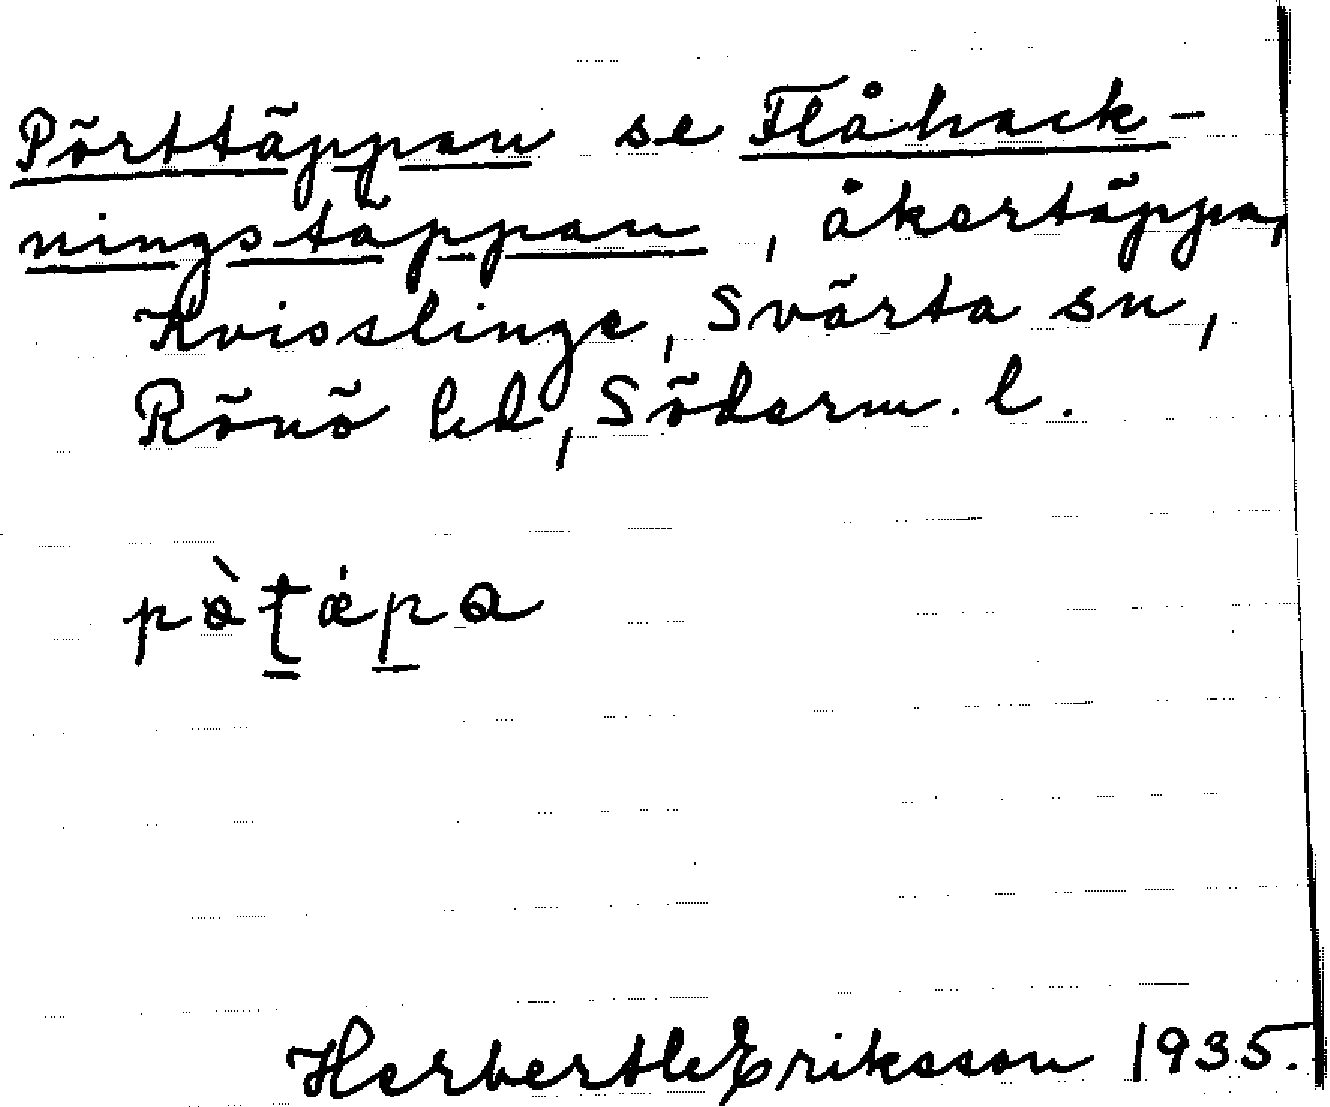 Pörttäppan se Flåhack-
ningstäppan, åkertäppa,
Kvisslinge, Svärta sn,
Rönö hd, Söderm. l.
Eriksson 1935.